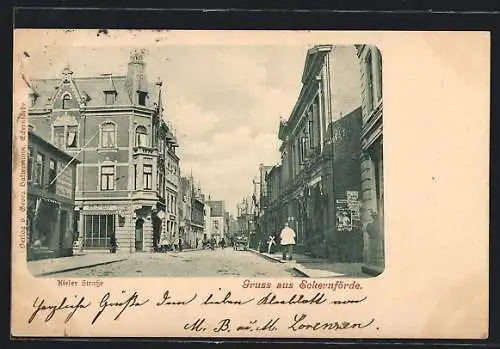 Verlag v. Georg Baltermann, Eckernförde.
Kieler Straße
Gruss aus Eckernförde.
Herzliche Grüße dem lieben Kleeblatt von
M. B. au M. Lorenzen